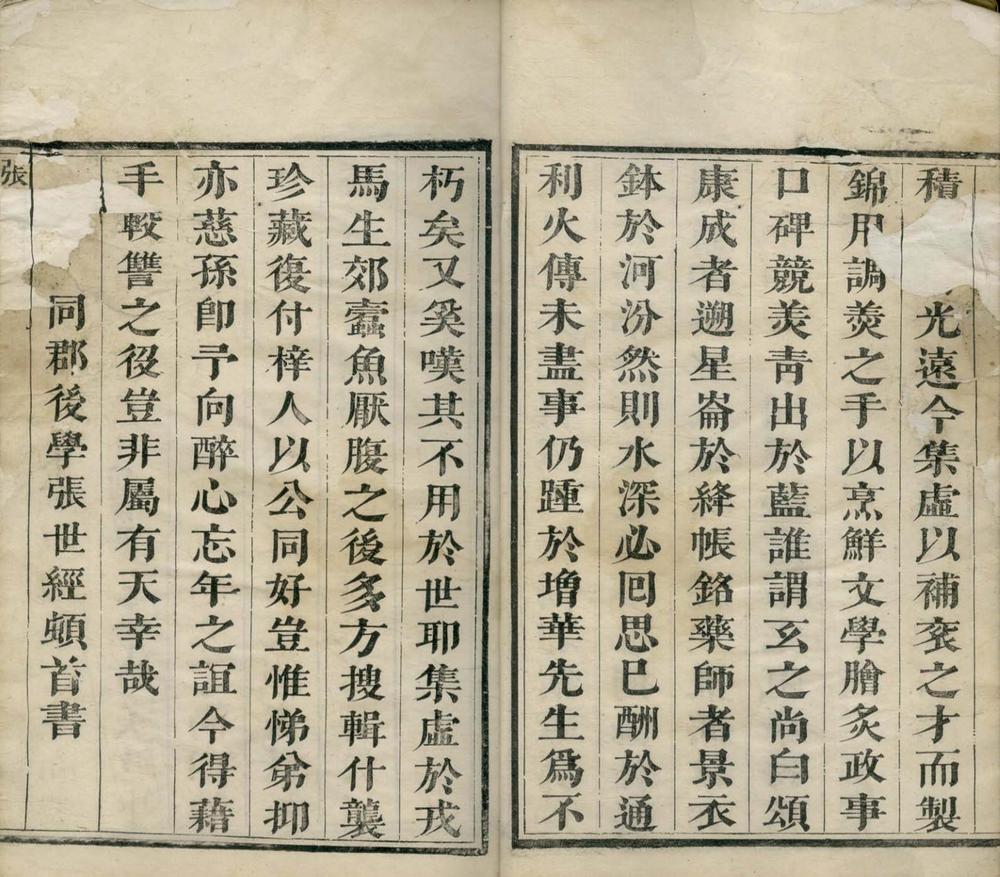 積光遠今集虛以補袞之才而製
錦用調羮之手以烹鮮文學膾炙政事
口碑競羙靑出於藍誰謂玄之尚白頌
康成者遡星崙於絳帳銘藥師者景衣
鉢於河汾然則水深必囘思巳酬於通
利火傳未盡事仍踵於增華先生爲不
朽矣又奚嘆其不用於世耶集虛於戎
馬生郊蠹魚厭腹之後多方搜輯什襲
珍藏復付梓人以公同好豈惟悌弟抑
亦慈孫卽予向醉心忘年之誼今得藉
手較讐之役豈非屬有天幸哉
同郡後學張世經頓首書
張